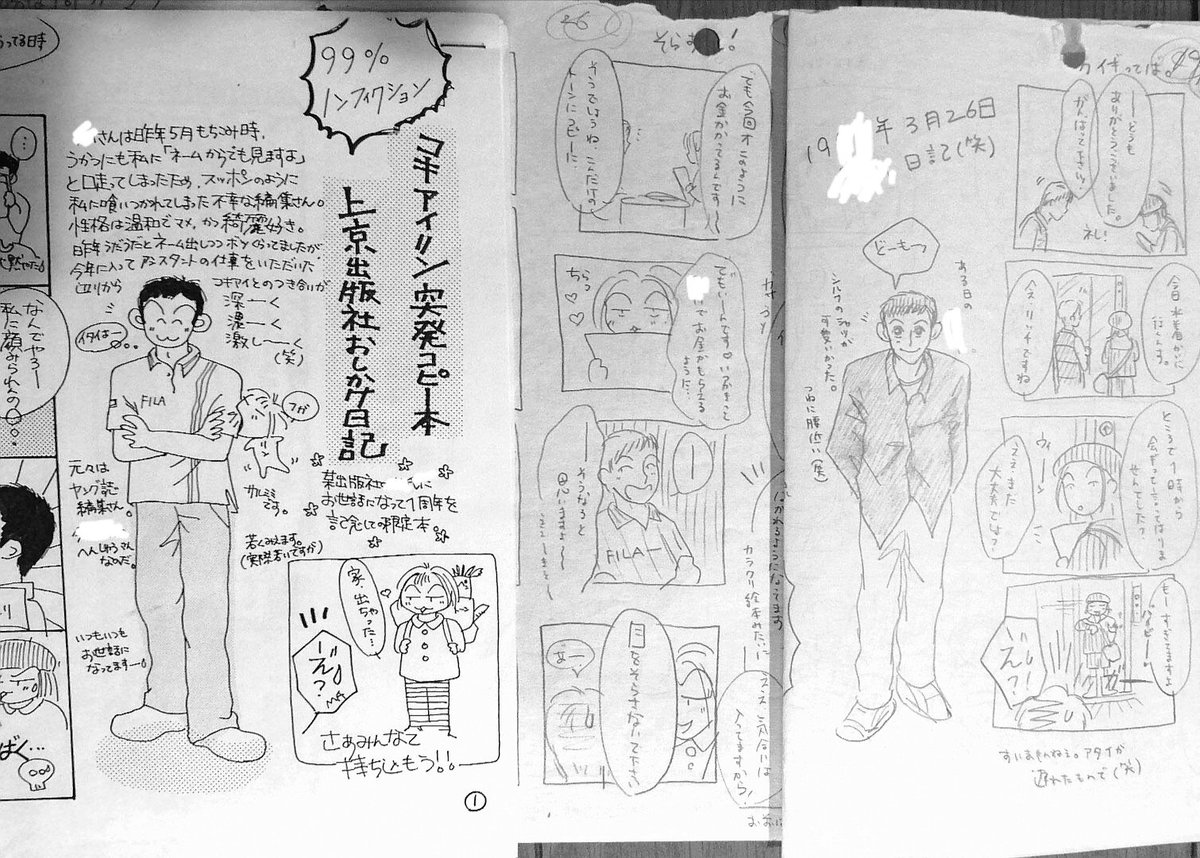 99%
ノンフィクション
コキアイリン突発コピー本
上京出版社おしかけ日記
さんは昨年5月もちこみ時、
うかつにも私に「ネームからでも見ますよ」
と口走ってしまったため、スッポンのように
私に喰いつかれてしまった不幸な編集さん。
性格は温和でマメ、かつ綺麗好き。
昨年うだうだとネーム出しつつボツくらってましたが
今年に入ってアシスタントの仕事をいただいた
辺りから コキアイとのつき合いが
深ーく
濃ーく
激しーく
(笑)
イタイはー
FILA
フガ
カルミミ
です。
元々は
ヤング誌
編集さん。
へんしゅうさん
なのだ。
若くみえます。
(実際若いですが)
いつもいつも
お世話に
なってますー。
某出版社 に
お世話になって1周年を
記念しての限定本。
家、出ちゃった…
え?
さぁみんなで
持ち込もう!!
①
ってる日寺
なんでやろー
私に顔みられへんの
ばく…
26
そらすな!
でも今回オこのように
お金かかってるんです〜
そうでしょうね、こんだけの
トーンにコピーに
ちっ
でもいーんです♡いつかきっと
でお金がもらえる
ように…
そうなると
思いますよ
FILA
目をそらさないで下さい
あー
カラクリ絵本みたいに
ええ 気合には
入ってますから!
49
19 年3月26日
日記(笑)
どーもっ
ある日の
シルクのシャツが
可愛いかった。
つねに腰低い(笑)
ーーどうも
ありがとうございました。
がんばって下さいっ
ペし!
今日 水着かいに
行くんす。
今スリッチですね
ところで1時から
会ぎと言ってはいま
せんでした?
ええまた
大丈夫でしょ?
もーすぎてますよ
え?!
すいませんねぇ。アタイが
遅れたもので(笑)